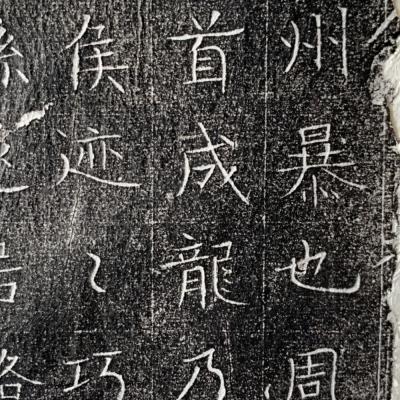 州暴也周
首成龍乃
侯迹〻巧